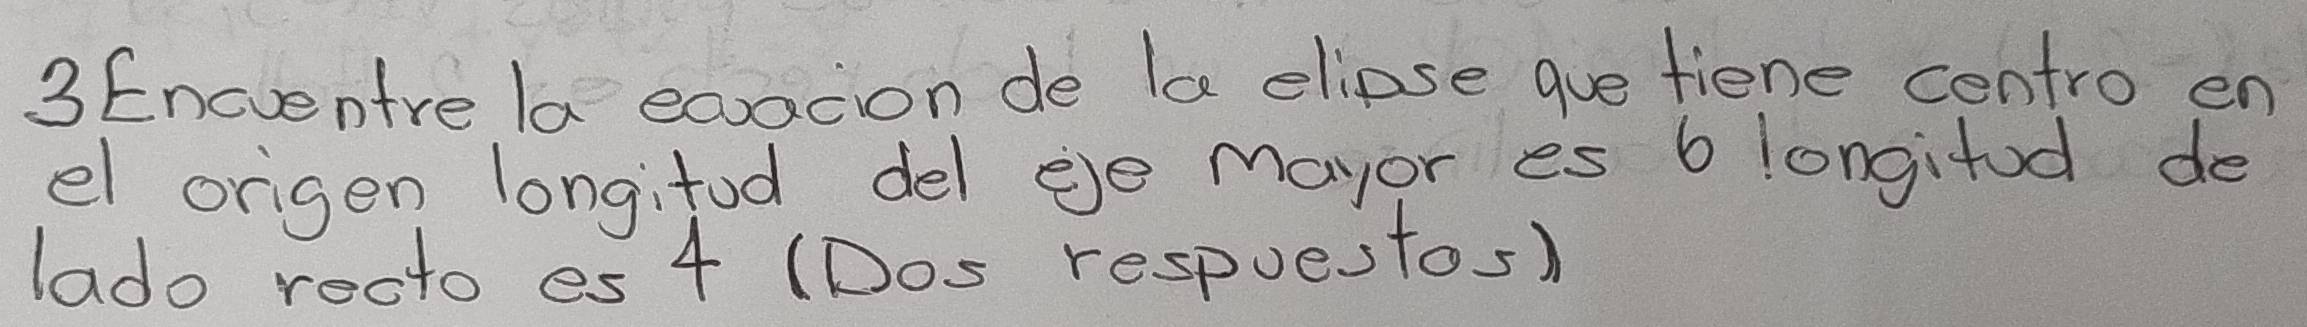 3 Encuentre la ecuacion de la elipse que tiene centro en
el origen longitud del eje mayor es 6 longitud de
lado recto es 4 (Dos respuestas)